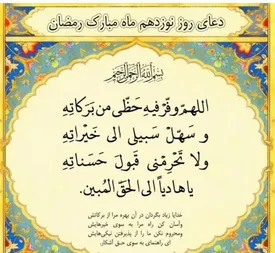 دعای روز نوزدهم ماه مبارک رمضان
بسم الله الرحمن الرحیم
اللهمّ وفّر فیهِ حَظّی من بَرَکاتِهِ
و سَهّلْ سبیلی الی خَیْراتِهِ
ولا تَحْرِمْنی قبولَ حَسَناتِهِ
یا هادیاً الی الحقّ المُبین.
خدایا زیاد بگردان در آن بهره مرا از برکاتش
وآسان کن راه مرا به سوی خیرهایش
ومحروم نکن ما را از پذیرفتن نیکی‌هایش
ای راهنمای به سوی حق آشکار.